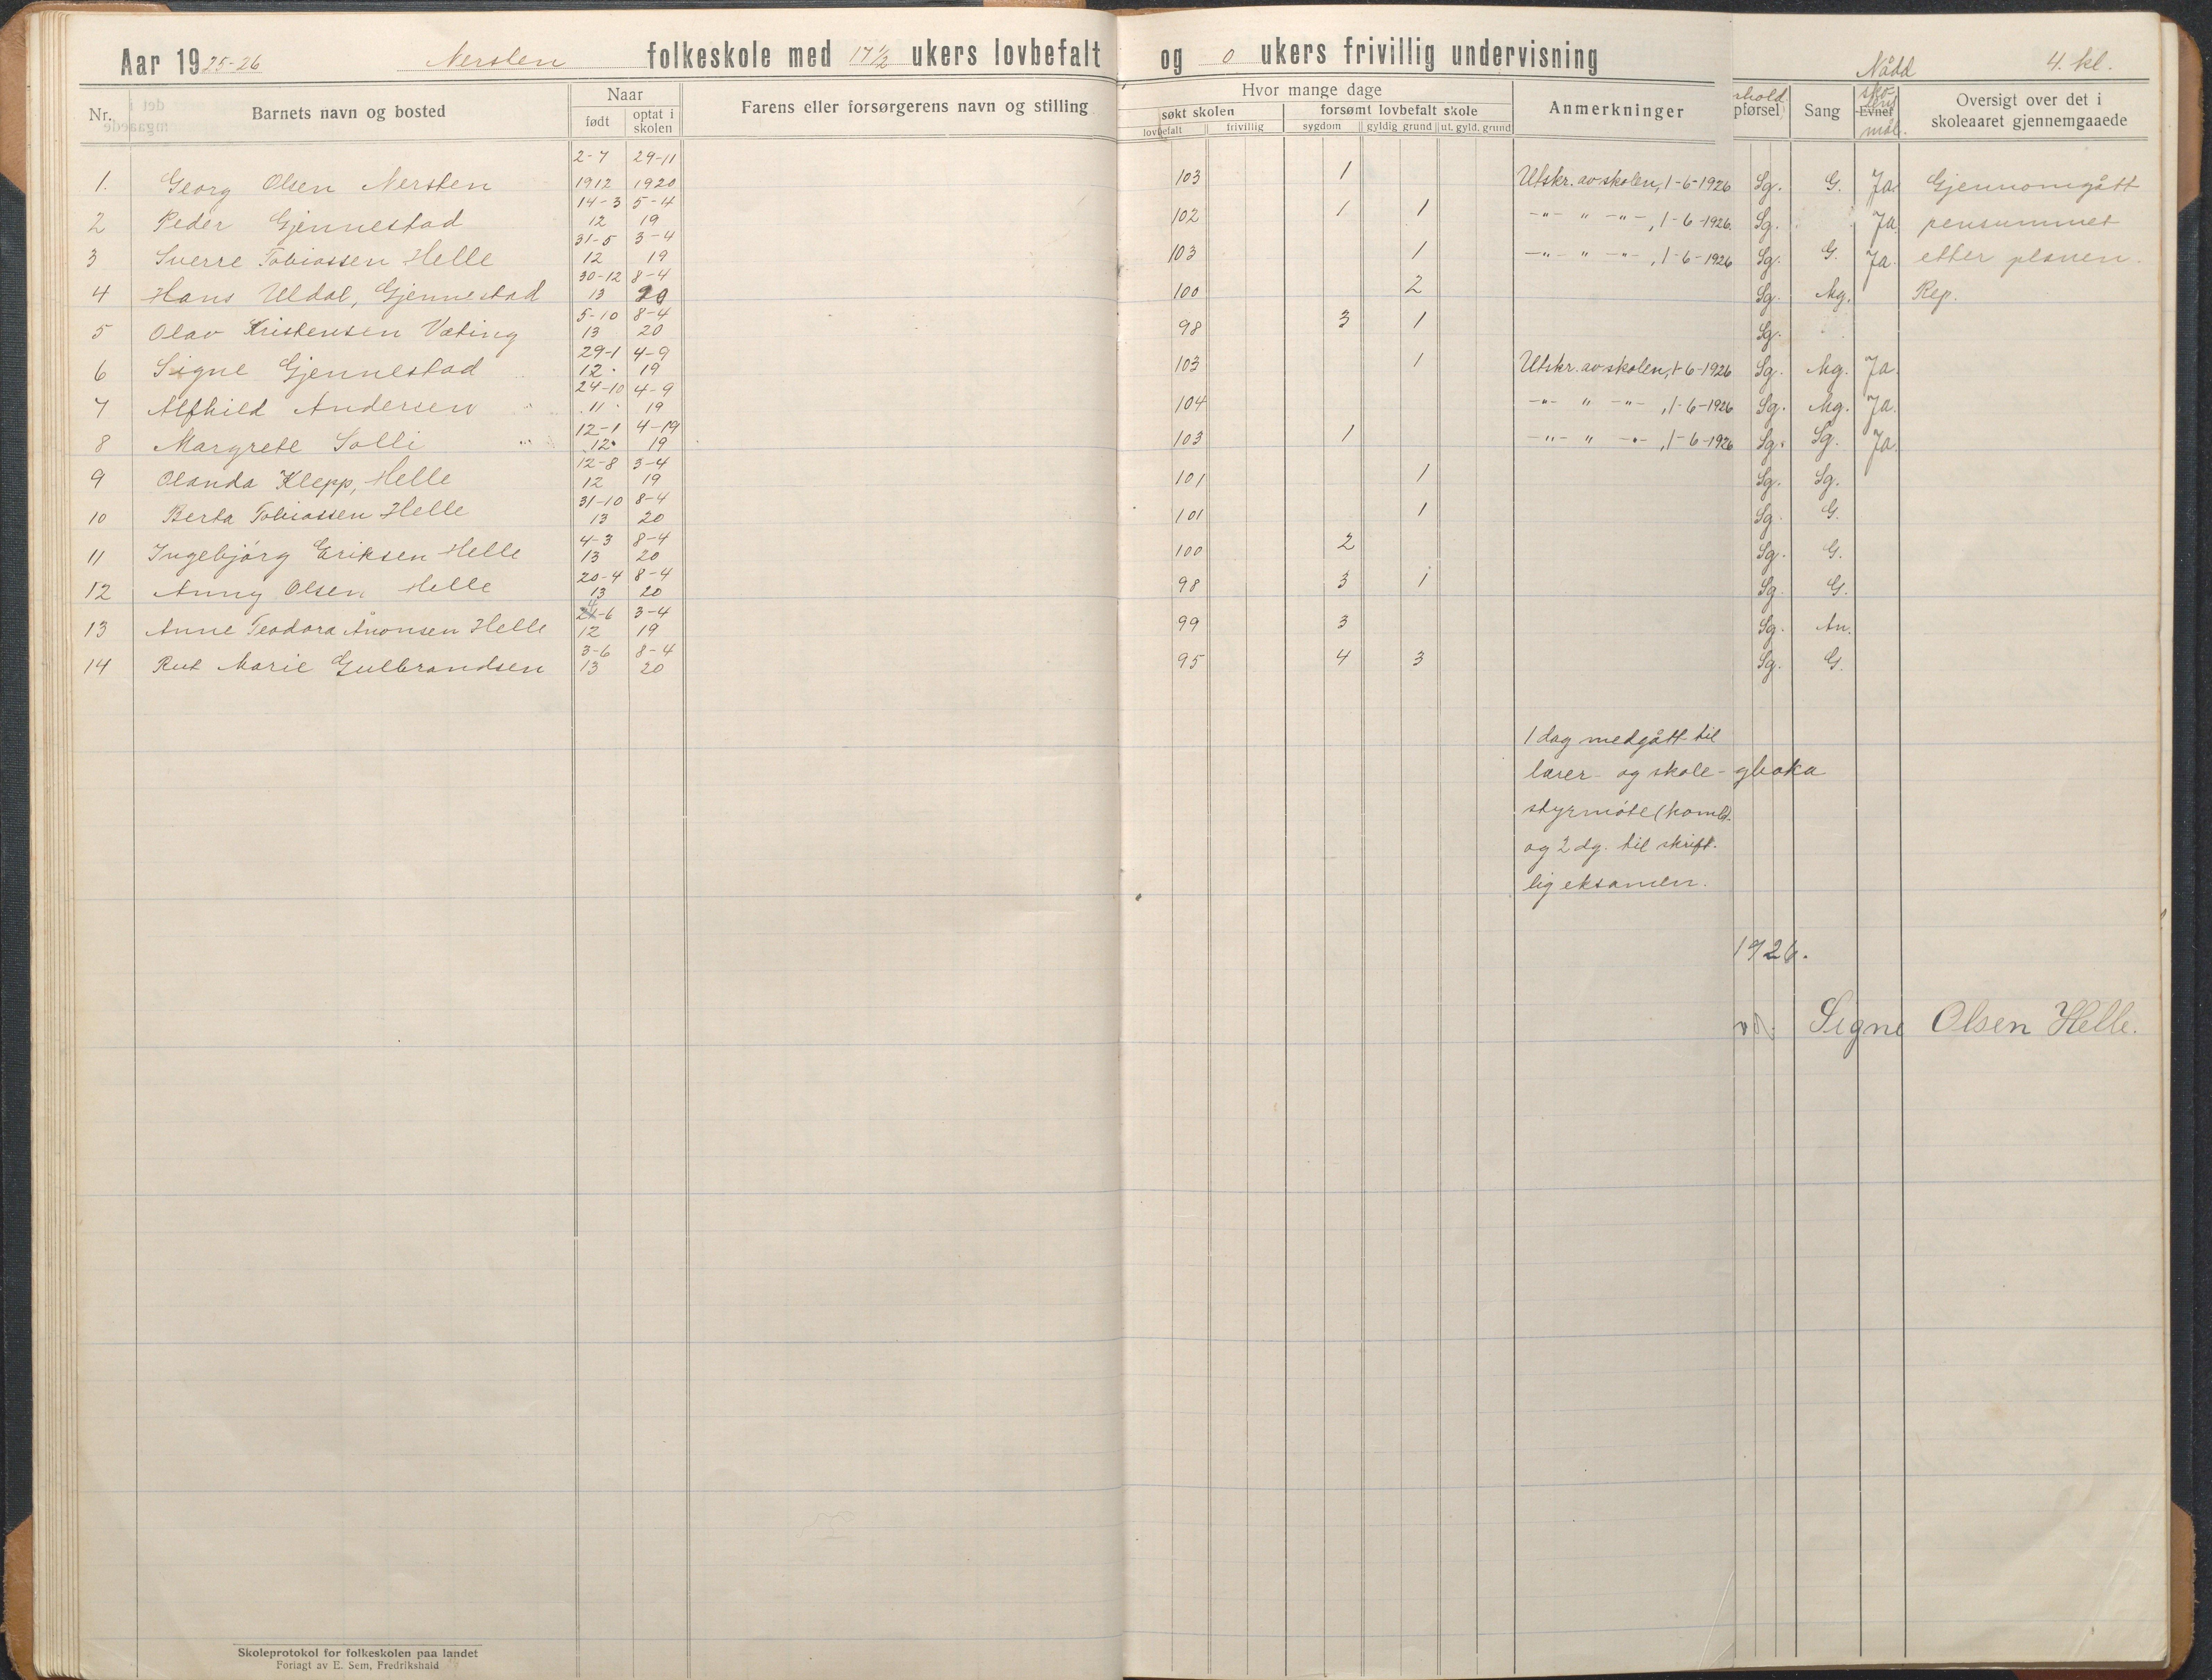 Aar 1925-26 Nersten folkeskole med 17½ ukers lovbefalt og 0 ukers frivillig undervisning Nådd 4. kl.
Nr. Barnets navn og bosted Naar født optat i skolen Farens eller forsørgerens navn og stilling Hvor mange dage søkt skolen lovbefalt frivillig forsømt lovbefalt skole sygdom gyldig grund ut. gyld. grund Anmerkninger rhold pførsel Sang Evner skolens mål. Oversigt over det i skoleaaret gjennemgaaede
1. Georg Olsen Nersten 2-7 1912 29-11 1920 103 1 Utskr. av skolen, 1-6-1926 Sg. G. Ja. Gjennomgått
2 Peder Gjennestad 14-3 12 5-4 19 102 1 1 -"- " -"-, 1-6-1926. Sg. Ja. pensummet
3 Sverre Tobiassen Helle 31-5 12 3-4 19 103 1 -"- " -"-, 1-6-1926 Sg. G. Ja. etter planen.
4 Hans Uldal, Gjennestad 30-12 13 8-4 20 100 2 Sg. Mg. Rep.
5 Olav Kristensen Væting 5-10 13 8-4 20 98 3 1 Sg.
6 Signe Gjennestad 29-1 12 4-9 19 103 1 Utskr. av skolen, 1-6-1926 Sg. Mg. Ja.
7 Alfhild Andersen 24-10 11 4-9 19 104 -"- " -"-, 1-6-1926 Sg. Mg. Ja.
8 Margrete Solli 12-1 12 4-19 19 103 1 -"- " -"-, 1-6-1926 Sg. Sg. Ja.
9 Olanda Klepp, Helle 12-8 12 3-4 19 101 1 Sg. Sg.
10 Berta Tobiassen Helle 31-10 13 8-4 20 101 1 Sg. G.
11 Ingebjørg Eriksen Helle 4-3 13 8-4 20 100 2 Sg. G.
12 Anny Olsen Helle 20-4 13 8-4 20 98 3 1 Sg. G.
13 Anne Teodora Ånonsen Helle 24-6 12 3-4 19 99 3 Sg. Mn.
14 Rut Marie Gulbrandsen 3-6 13 8-4 20 95 4 3 Sg. G.
1 dag medgått til
lærer- og skole- gboka
styrmøte (komb.
og 2 dg. til skrift.
lig eksamen.
1926.
Signe Olsen Helle.
Skoleprotokol for folkeskolen paa landet
Forlagt av E. Sem, Fredrikshald